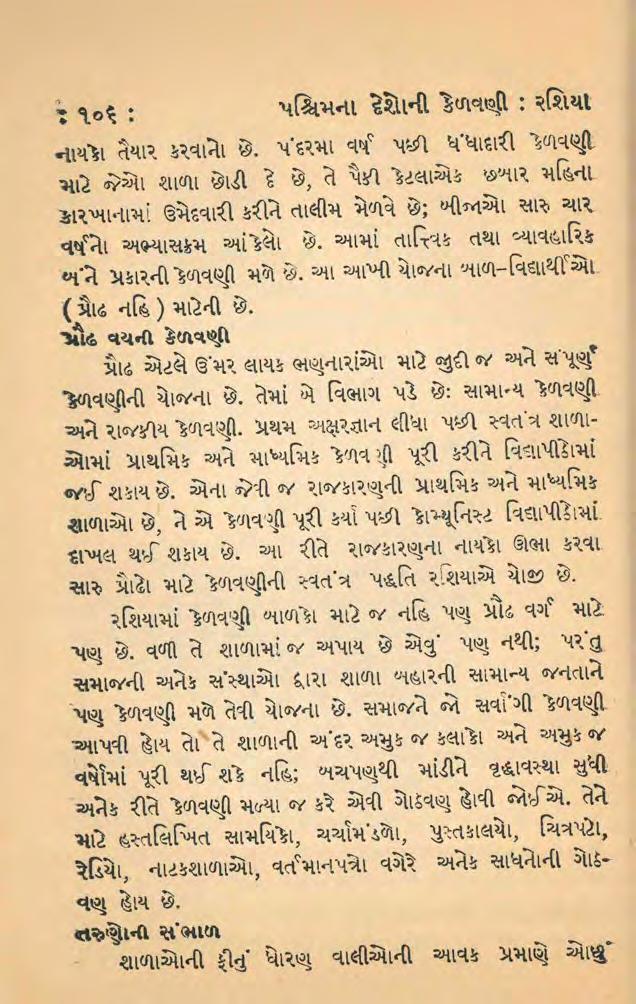 : ૧૦૬ : પશ્ચિમના દેશોની કેળવણી : રશિયા
નાયકો તૈયાર કરવાનો છે. પંદરમા વર્ષ પછી ધંધાદારી કેળવણી
માટે જેઓ શાળા છોડી દે છે, તે પૈકી કેટલાએક છબાર મહિના
કારખાનામાં ઉમેદવારી કરીને તાલીમ મેળવે છે; બીજાઓ સારુ ચાર
વર્ષનો અભ્યાસક્રમ આંકેલો છે. આમાં તાત્ત્વિક તથા વ્યાવહારિક
બંને પ્રકારની કેળવણી મળે છે. આ આખી યોજના બાળ-વિદ્યાર્થીઓ
( પ્રૌઢ નહિ ) માટેની છે.
પ્રૌઢ વયની કેળવણી
પ્રૌઢ એટલે ઉંમર લાયક ભણનારાંઓ માટે જુદી જ અને સંપૂર્ણ
કેળવણીની યોજના છે. તેમાં બે વિભાગ પડે છેઃ સામાન્ય કેળવણી
અને રાજકીય કેળવણી. પ્રથમ અક્ષરજ્ઞાન લીધા પછી સ્વતંત્ર શાળા-
ઓમાં પ્રાથમિક અને માધ્યમિક કેળવણી પૂરી કરીને વિદ્યાપીઠોમાં
જઈ શકાય છે. એના જેવી જ રાજકારણની પ્રાથમિક અને માધ્યમિક
શાળાઓ છે, ને એ કેળવણી પૂરી કર્યા પછી કોમ્યૂનિસ્ટ વિદ્યાપીઠોમાં
દાખલ થઈ શકાય છે. આ રીતે રાજકારણના નાયકો ઊભા કરવા
સારુ પ્રૌઢો માટે કેળવણીની સ્વતંત્ર પદ્ધતિ રશિયાએ યોજી છે.
રશિયામાં કેળવણી બાળકો માટે જ નહિ પણ પ્રૌઢ વર્ગ માટે
પણ છે. વળી તે શાળામાં જ અપાય છે એવું પણ નથી; પરંતુ
સમાજની અનેક સંસ્થાઓ દ્વારા શાળા બહારની સામાન્ય જનતાને
પણ કેળવણી મળે તેવી યોજના છે. સમાજને જો સર્વાંગી કેળવણી
આપવી હોય તો તે શાળાની અંદર અમુક જ કલાકો અને અમુક જ
વર્ષોમાં પૂરી થઈ શકે નહિ; બચપણથી માંડીને વૃદ્ધાવસ્થા સુધી
અનેક રીતે કેળવણી મળ્યા જ કરે એવી ગોઠવણ હોવી જોઈએ. તેને
માટે હસ્તલિખિત સામયિકો, ચર્ચામંડળો, પુસ્તકાલયો, ચિત્રપટો,
રેડિયો, નાટકશાળાઓ, વર્તમાનપત્રો વગેરે અનેક સાધનોની ગોઠ-
વણ હોય છે.
તરુણોની સંભાળ
શાળાઓની ફીનું ધોરણ વાલીઓની આવક પ્રમાણે ઓછું